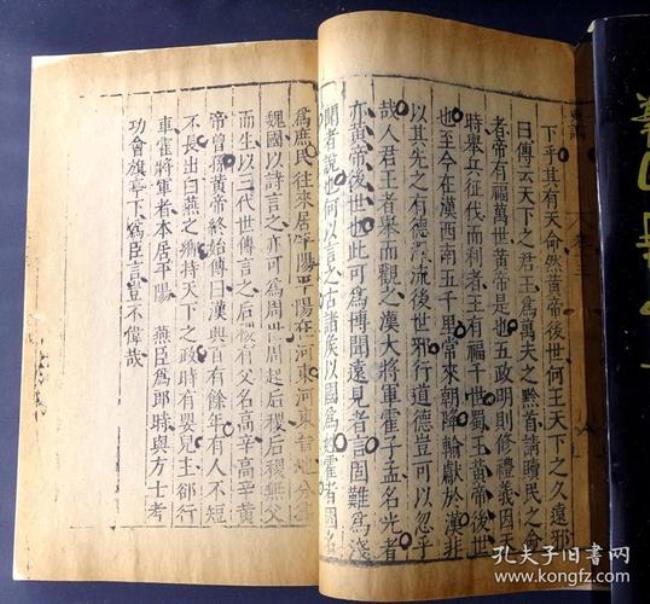 下乎其有天命然黃帝後世何王天下之久遠邪
曰傳云天下之君王爲萬夫之黔首請贖民之命
者帝有福萬世黃帝是也五政明則修禮義因天
時舉兵征伐而利者王有福千世蜀王黃帝後世
也至今在漢西南五千里常來朝降輸獻於漢非
以其先之有德澤流後世邪行道德豈可以忽乎
哉人君王者舉而觀之漢大將軍霍子孟名光者
亦黃帝後世也此可爲博聞遠見者言固難爲淺
聞者說也何以言之古諸侯以國爲姓霍者國名
爲庶民往來居平陽平陽在河東河東晉地分爲
魏國以詩言之亦可爲周世周起后稷后稷無父
而生以三代世傳言之后稷有父名高辛高辛黃
帝曾孫黃帝終始傳曰漢興百有餘年有人不短
不長出白燕之鄉持天下之政時有嬰兒主卻行
車霍將軍者本居平陽 燕臣爲郎時與方士考
功會旗亭下爲臣言豈不偉哉
孔夫子旧书网
kongfz.com